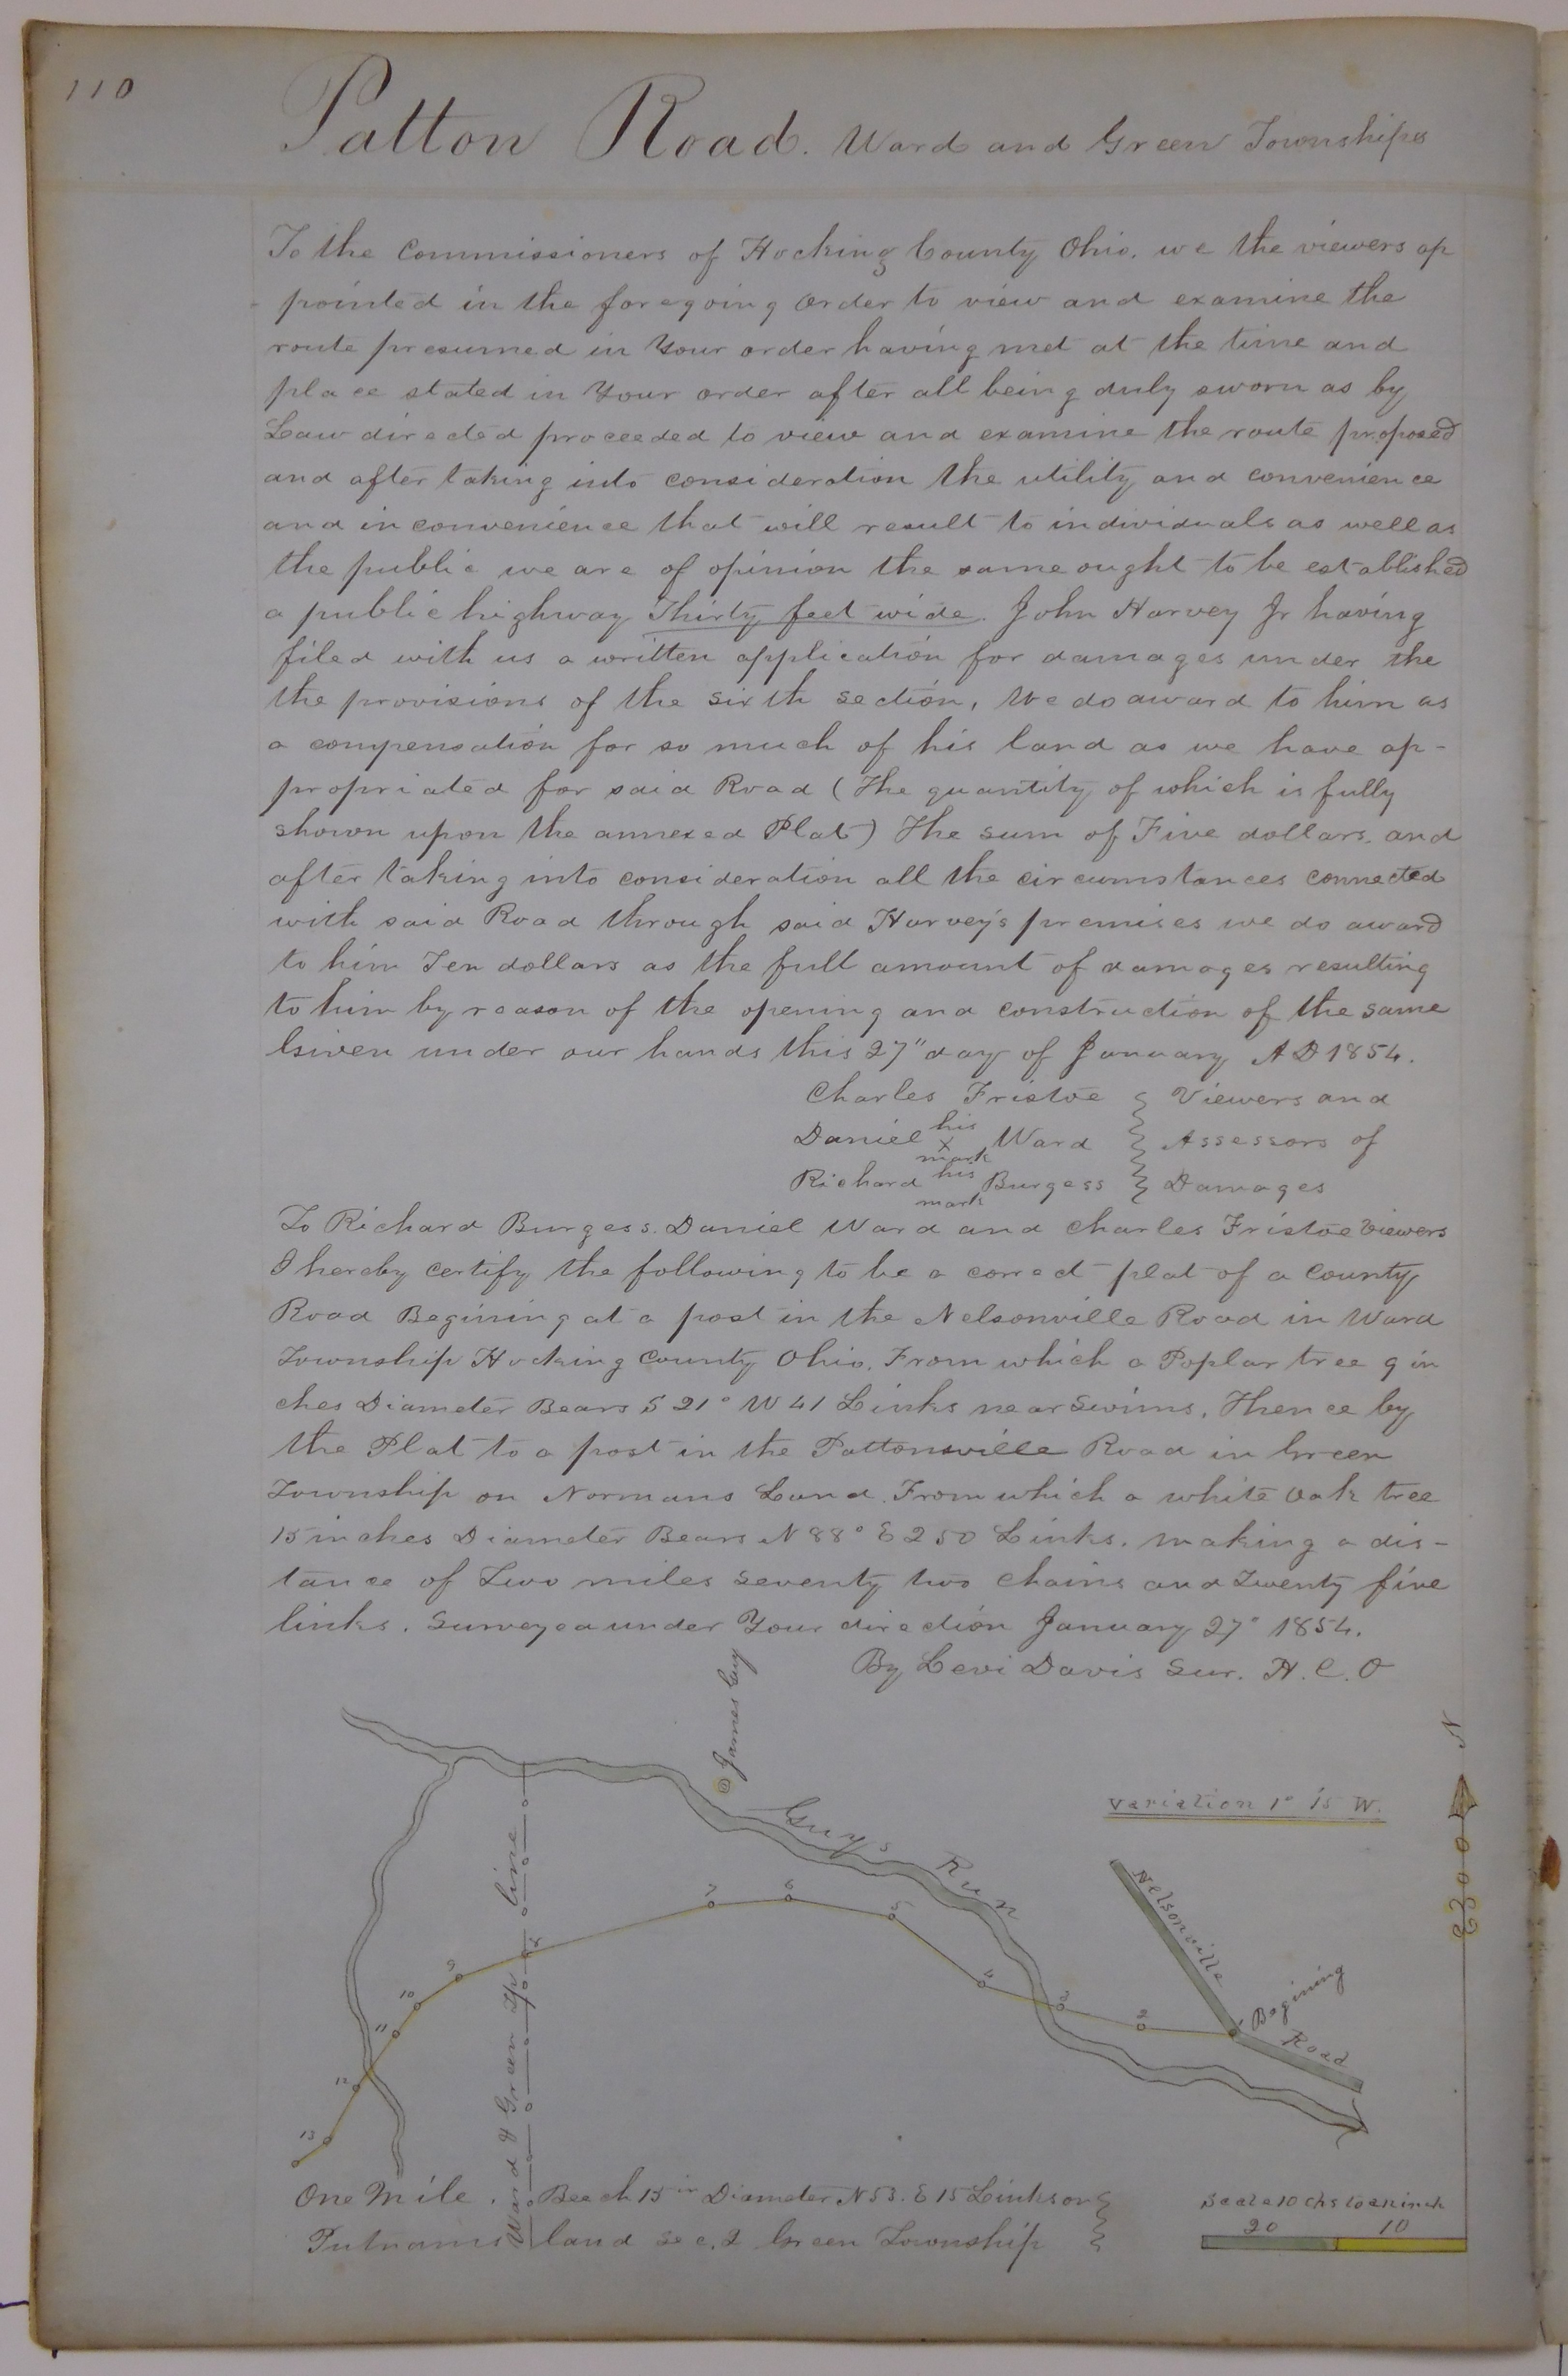 110
Patton Road. Ward and Green Townships
To the Commissioners of Hocking County Ohio. we the viewers ap
pointed in the foregoing order to view and examine the
route presumed in Your order having met at the time and
place stated in Your order after all being duly sworn as by
Law directed proceeded to view and examine the route proposed
and after taking into consideration the utility and convenience
and inconvenience that will result to individuals as well as
the public we are of opinion the same ought to be established
a public highway Thirty feet wide. John Harvey Jr having
filed with us a written application for damages under the
the provisions of the sixth section, We do award to him as
a compensation for so much of his land as we have ap-
propriated for said Road (The quantity of which is fully
shown upon the annexed Plat) The sum of Five dollars. and
after taking into consideration all the circumstances connected
with said Road through said Harvey's premises we do award
to him Ten dollars as the full amount of damages resulting
to him by reason of the opening and construction of the same
Given under our hands this 27" day of January A D 1854.
Charles Fristoe } Viewers and
Daniel his X mark Ward } Assessors of
Richard his mark Burgess } Damages
To Richard Burgess. Daniel Ward and Charles Fristoe Viewers
I hereby certify the following to be a correct plat of a County
Road Begining at a post in the Nelsonville Road in Ward
Township Hocking County Ohio. From which a Poplar tree 9 in
ches Diameter Bears S 21° W 41 Links near Swims. Thence by
the Plat to a post in the Pattonsville Road in Green
Township on Normans Land. From which a white Oak tree
15 inches Diameter Bears N 88° E 250 Links. making a dis-
tance of Two miles Seventy two chains and Twenty five
links. Surveyed under Your direction January 27° 1854.
By Levi Davis Sur. H. C. O
James Guy
N
variation 1° 15 W.
Guys Run
Nelsonville
Road
Begining
2
3
4
5
6
7
8
9
10
11
12
13
Ward & Green Tp line
One Mile. Beech 15 in Diameter N 53. E 15 Links on }
Putnams land Sec. 2 Green Township
Scale 10 chs to an inch
20 10